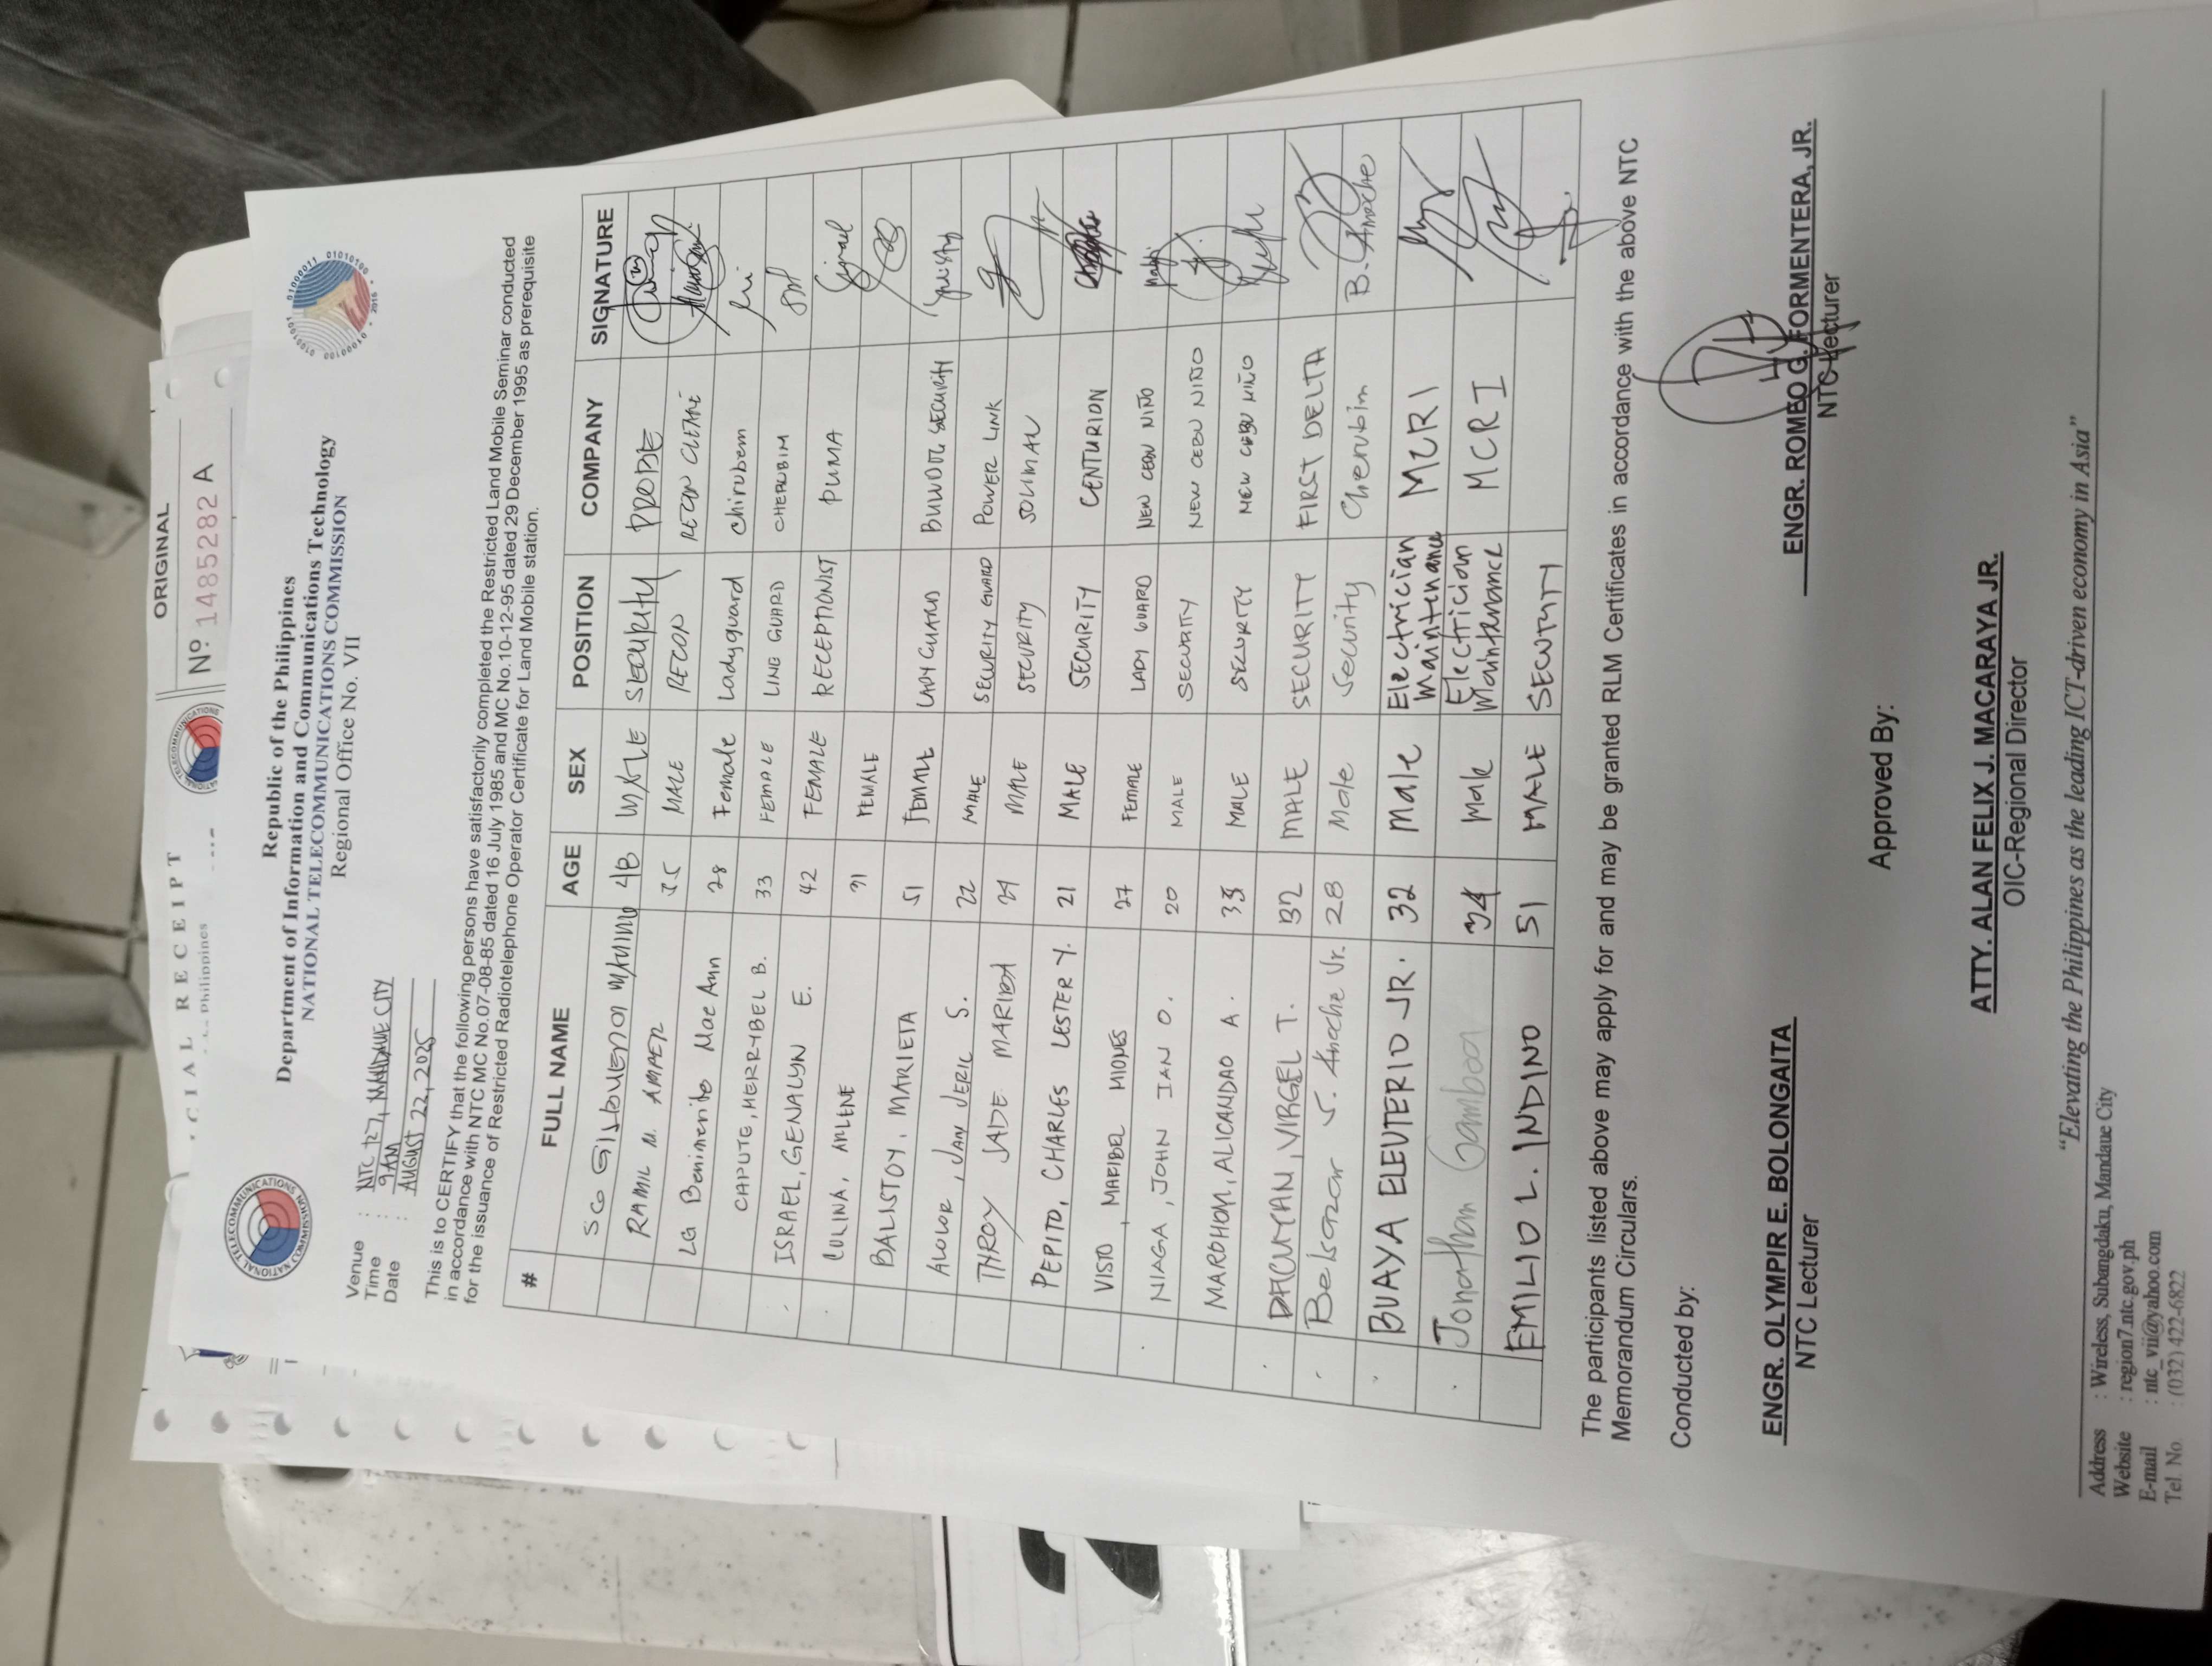 ORIGINAL
CIAL RECEIPT
Philippines
Nº 1485282 A
Republic of the Philippines
Department of Information and Communications Technology
NATIONAL TELECOMMUNICATIONS COMMISSION
Regional Office No. VII
Venue : NTC R7, MANDAUE CITY
Time : 9AM
Date : AUGUST 22, 2025
This is to CERTIFY that the following persons have satisfactorily completed the Restricted Land Mobile Seminar conducted
in accordance with NTC MC No.07-08-85 dated 16 July 1985 and MC No.10-12-95 dated 29 December 1995 as prerequisite
for the issuance of Restricted Radiotelephone Operator Certificate for Land Mobile station.
# FULL NAME AGE SEX POSITION COMPANY SIGNATURE
SG 48 MALE SECURITY PRODE
RAMIL M. AMPER MALE RECON RECON
LG Beniminito Mae Ann 28 Female Ladyguard chirubem
CAPUTE, HERRYBEL B. 33 FEMALE GUARD CHERUBIM
ISRAEL, GENALYN E. 42 FEMALE RECEPTIONIST PUMA
COLINA, ARLENE FEMALE
BALISTOY, MARIETA 51 FEMALE LADY GUARD SECURITY
JAN JERIC S. 22 MALE SECURITY GUARD POWER LINK
THROY JADE MARIDA MALE SECURITY SOLIMAN
PEPITO, CHARLES LESTER Y. 21 MALE SECURITY CENTURION
VISTO, MAFIDEL MIONES 27 FEMALE LADY GUARD NEW CEBU NIÑO
NIAGA, JOHN IAN O. 20 MALE SECURITY NEW CEBU NIÑO
MARDHOM, ALICANDAO A. MALE SECURITY NEW CEBU NIÑO
VIRGEL T. 32 MALE SECURITY FIRST DELTA
Belsazar S. Anoche Jr. 28 Male Security Cherubim B. Anoche
BUAYA ELEUTERIO JR. 32 Male Electrician Maintenance MCRI
Jonathan Gamboa 34 Male Electrician Maintenance MCRI
EMILIO L. INDINO 51 MALE SECURITY
The participants listed above may apply for and may be granted RLM Certificates in accordance with the above NTC
Memorandum Circulars.
Conducted by:
ENGR. OLYMPIR E. BOLONGAITA
NTC Lecturer
ENGR. ROMEO G. FORMENTERA, JR.
NTC Lecturer
Approved By:
ATTY. ALAN FELIX J. MACARAYA JR.
OIC-Regional Director
“Elevating the Philippines as the leading ICT-driven economy in Asia”
Address : Wireless, Subangdaku, Mandaue City
Website : region7.ntc.gov.ph
E-mail : ntc_vii@yahoo.com
Tel. No. : (032) 422-6822